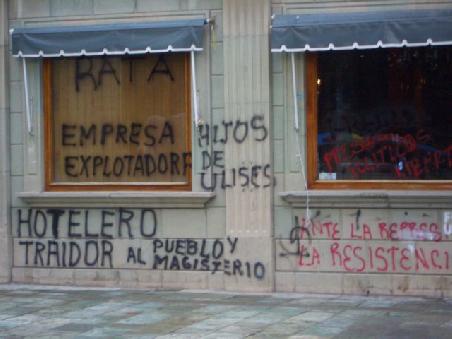 RATA
EMPRESA HIJOS
EXPLOTADORA DE
ULISES
HOTELERO
TRAIDOR AL PUEBLO Y
MAGISTERIO
ANTE LA REPRES
LA RESISTENCI